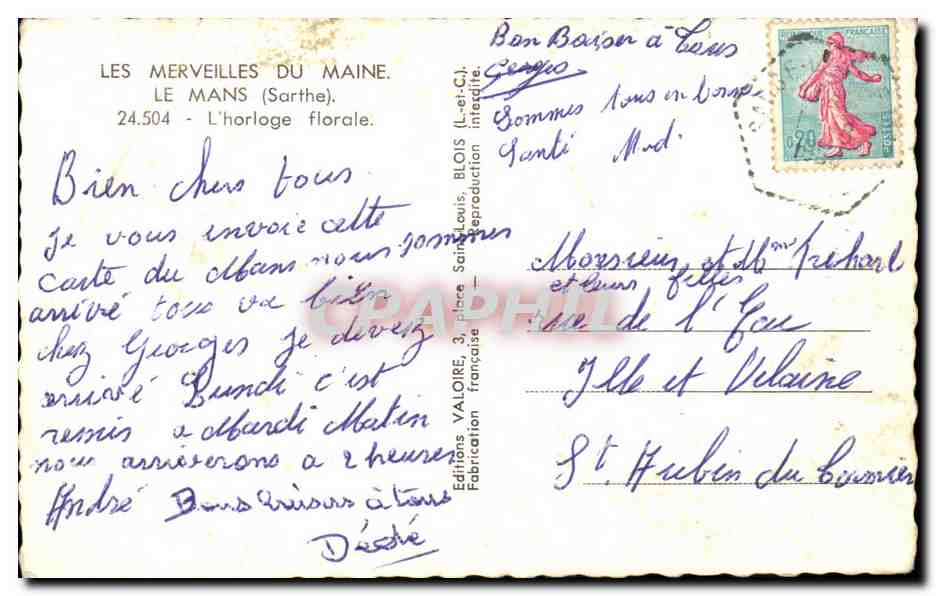 LES MERVEILLES DU MAINE.
LE MANS (Sarthe).
24.504 - L'horloge florale.
Bien chers tous
Je vous envoie cette
carte du Mans nous sommes
arrivé tous va bien
chez Georges je devez
arrivé Lundi c'est
remis a Mardi Matin
nous arriverons a 2 heures
André Bons baisers à tous
Dédé
Editions VALOIRE, 3, place Saint-Louis, BLOIS (L.-et-C.).
Fabrication française — Reproduction interdite.
Bon Baiser à tous
Georges
Sommes tous en bonne
Santé
REPUBLIQUE FRANÇAISE
0,20
POSTES
Monsieur et Mme
et leurs filles
rue de l'
Ille et Vilaine
St Aubin du Cormier
CPARHIL